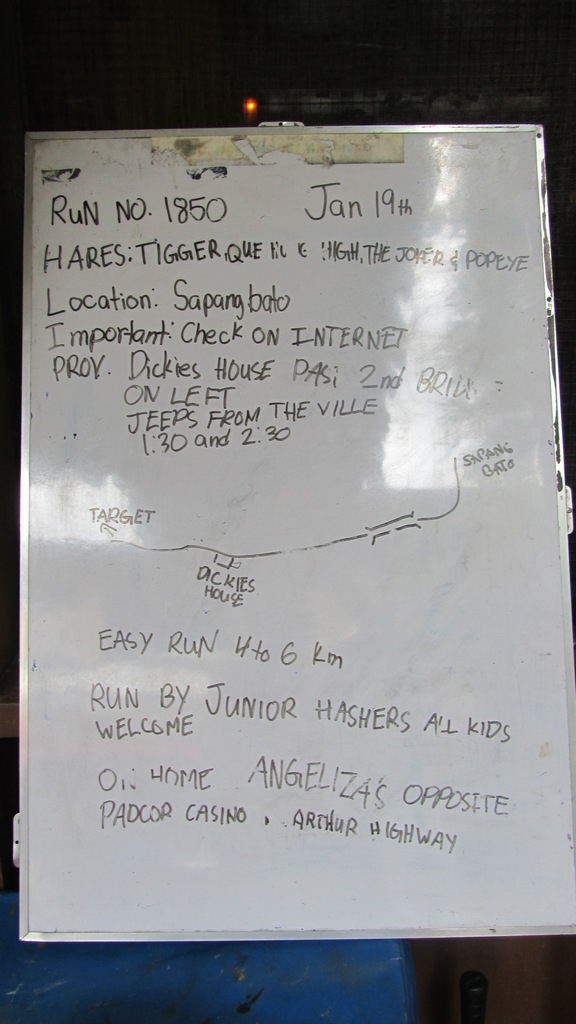 RUN NO. 1850 Jan 19th
HARES: TIGGER, QUE HIGH, THE JOKER & POPEYE
Location: Sapangbato
Important: Check ON INTERNET
PROV. Dickies HOUSE PAST 2nd
ON LEFT
JEEPS FROM THE VILLE
1:30 and 2:30
SAPANG
BATO
TARGET
DICKIES
HOUSE
EASY RUN 4 to 6 Km
RUN BY JUNIOR HASHERS ALL KIDS
WELCOME
ON HOME ANGELIZA'S OPPOSITE
PADCOR CASINO, ARTHUR HIGHWAY